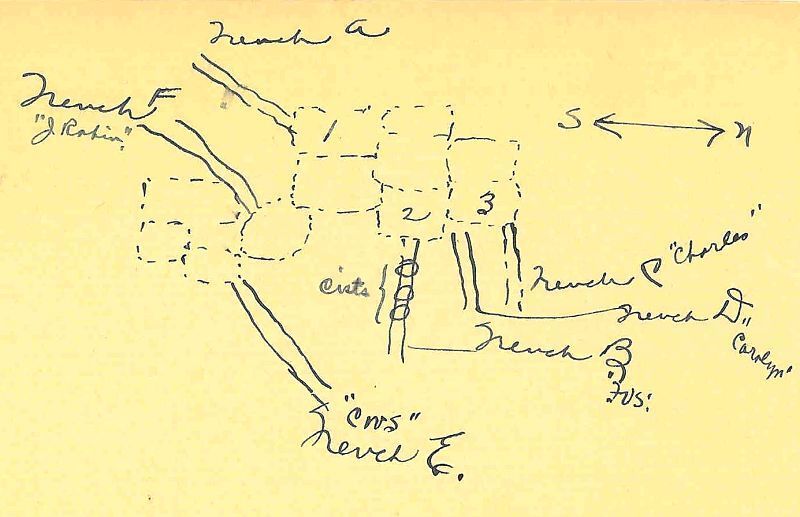 Trench A
Trench F
"J. Robin"
S
N
1
2
3
Cists
Trench C "Charles"
Trench D
"Carolyn"
Trench B
"CWS"
Trench E.